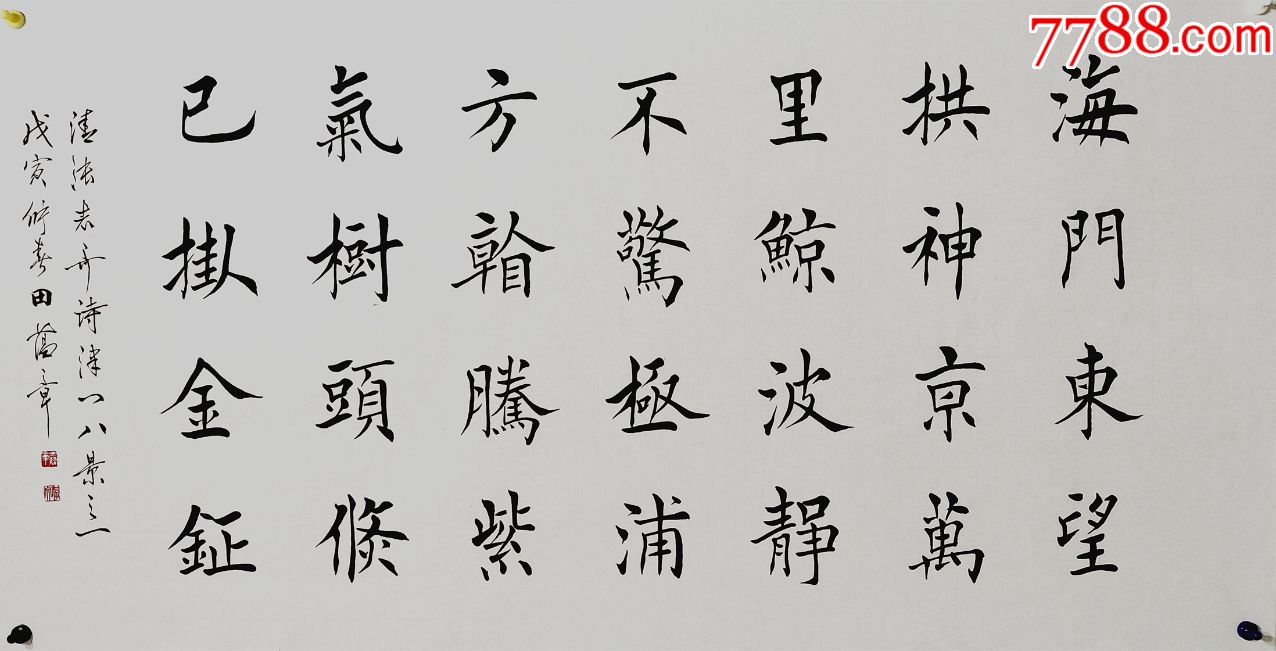 7788.com
海門東望
拱神京萬
里鯨波靜
不驚極浦
方暗騰紫
氣樹頭倐
已掛金鉦
清張志奇詩津門八景之一
戊寅仲春田蕴章